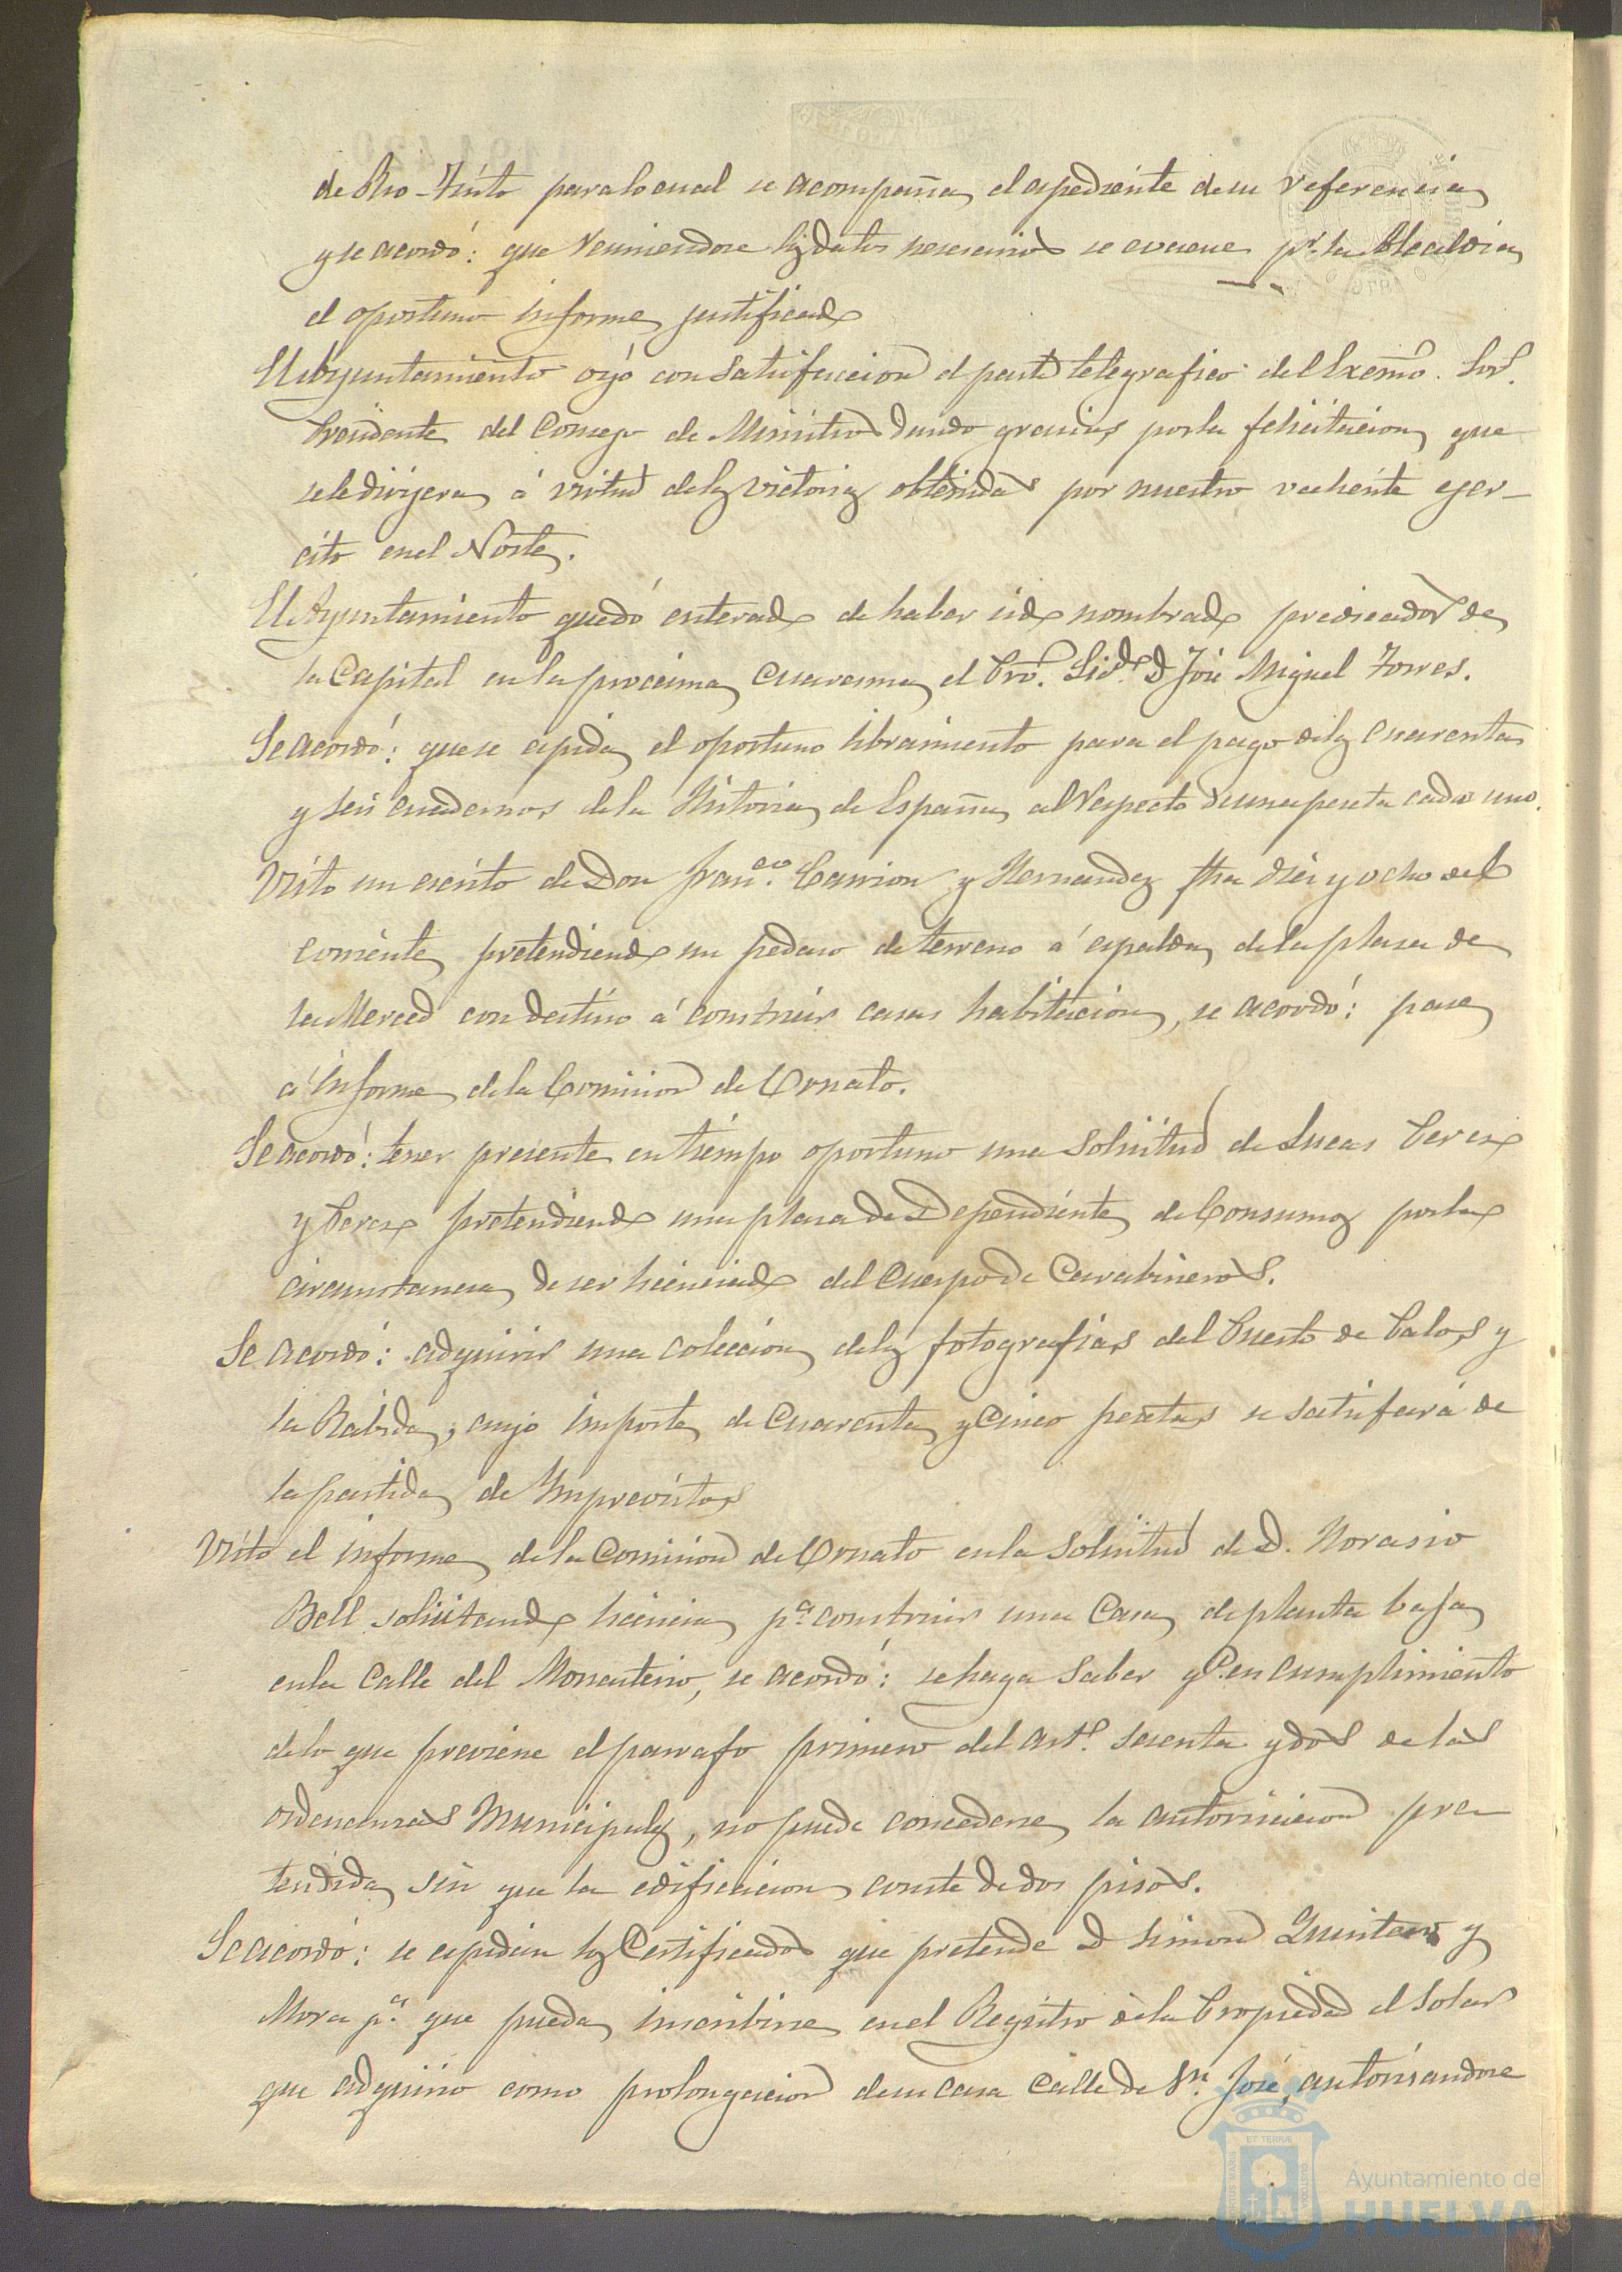 de Rio-Tinto para lo cual se acompaña el espediente de su referencia
y se acordó: que reuniendose los datos necesarios se evacue pr. la Alcaldia
el oportuno informe justificado
El Ayuntamiento oyó con satisfaccion el parte telegrafico del Excmo. Sor.
Presidente del Consejo de Ministros dando gracias por la felicitacion que
se le dirijera á virtud de las victorias obtenidas por nuestro valiente ejer-
cito en el Norte.
El Ayuntamiento quedó enterado de haber sido nombrado predicador de
la Capital en la procsima Cuaresma el Pro. Licdo. D José Miguel Torres.
Se acordó: que se espida el oportuno libramiento para el pago de los cuarenta
y seis cuadernos de la Historia de España al respecto de una peseta cada uno.
Visto un escrito de Don Franco. Carrion y Hernandez fha diez y ocho del
corriente pretendiendo un pedaso de terreno á espalda de la plasa de
la Merced con destino á construir casas habitacion, se acordó: pase
á informe de la Comision de Ornato.
Se acordó: tener presente en tiempo oportuno una solicitud de Lucas Perez
y Perez pretendiendo una plasa de Dependiente de Consumos por la
circunstancia de ser licenciado del Cuerpo de Carabineros.
Se acordó: adquirir una coleccion de las fotografias del Puerto de Palos y
la Rabida, cuyo importe de Cuarenta y Cinco pesetas se satisfará de
la partida de Imprevistos
Visto el informe de la Comision de Ornato en la solicitud de D. Horasio
Bell solicitando licencia pa. construir una Casa de planta baja
en la Calle del Monasterio, se acordó: se haga saber q.e en cumplimiento
de lo que previene el parrafo primero del artº. sesenta y dos de las
ordenanzas Municipales, no puede concederse la autorisacion pre
tendida sin que la edificacion conste de dos pisos.
Se acordó: se espidan los Certificados que pretende D Simon Quintero y
Mora pa. que pueda inscribirse en el Registro de la Propiedad el Solar
que adquirio como prolongacion de su casa Calle de Sn. José, autorisandose
Ayuntamiento de
HUELVA